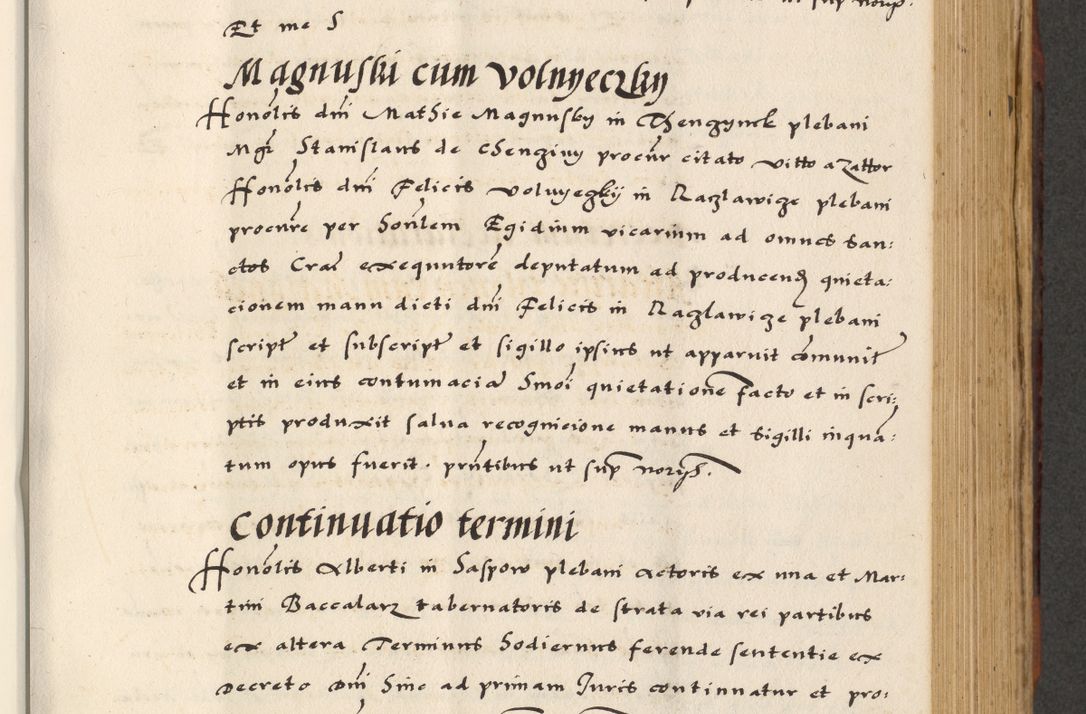 Et me S
Magnuski cum Volnyeczky
Honolis dni Mathie Magnusky in Thenczynek plebani
Mgr Stanislaus de Chenziny procur citato vitto azattor
Honolis dni Felicis volnyeczkij in Raczlawicze plebani
procure per honlem Egidium vicarium ad omnes san:
ctos Crac exequutore deputatum ad producend quieta:
cionem manu dicti dni Felicis in Raczlawicze plebani
script et subscript et sigillo ipsius ut apparuit comunit
et in eius contumacia Smoi quietatione facto et in scri:
ptis produxit salua recognicione manus et sigilli inqua:
tum opus fuerit. pntibus ut sup
Continuatio termini
Honolis Alberti in Saspow plebani actoris ex una et Mar:
tini Baccalarz tabernatoris de strata via rei partibus
ex altera Terminus hodiernus ferende sententie ex
Decreto Dni hinc ad primam Iuris continuatur et pro: